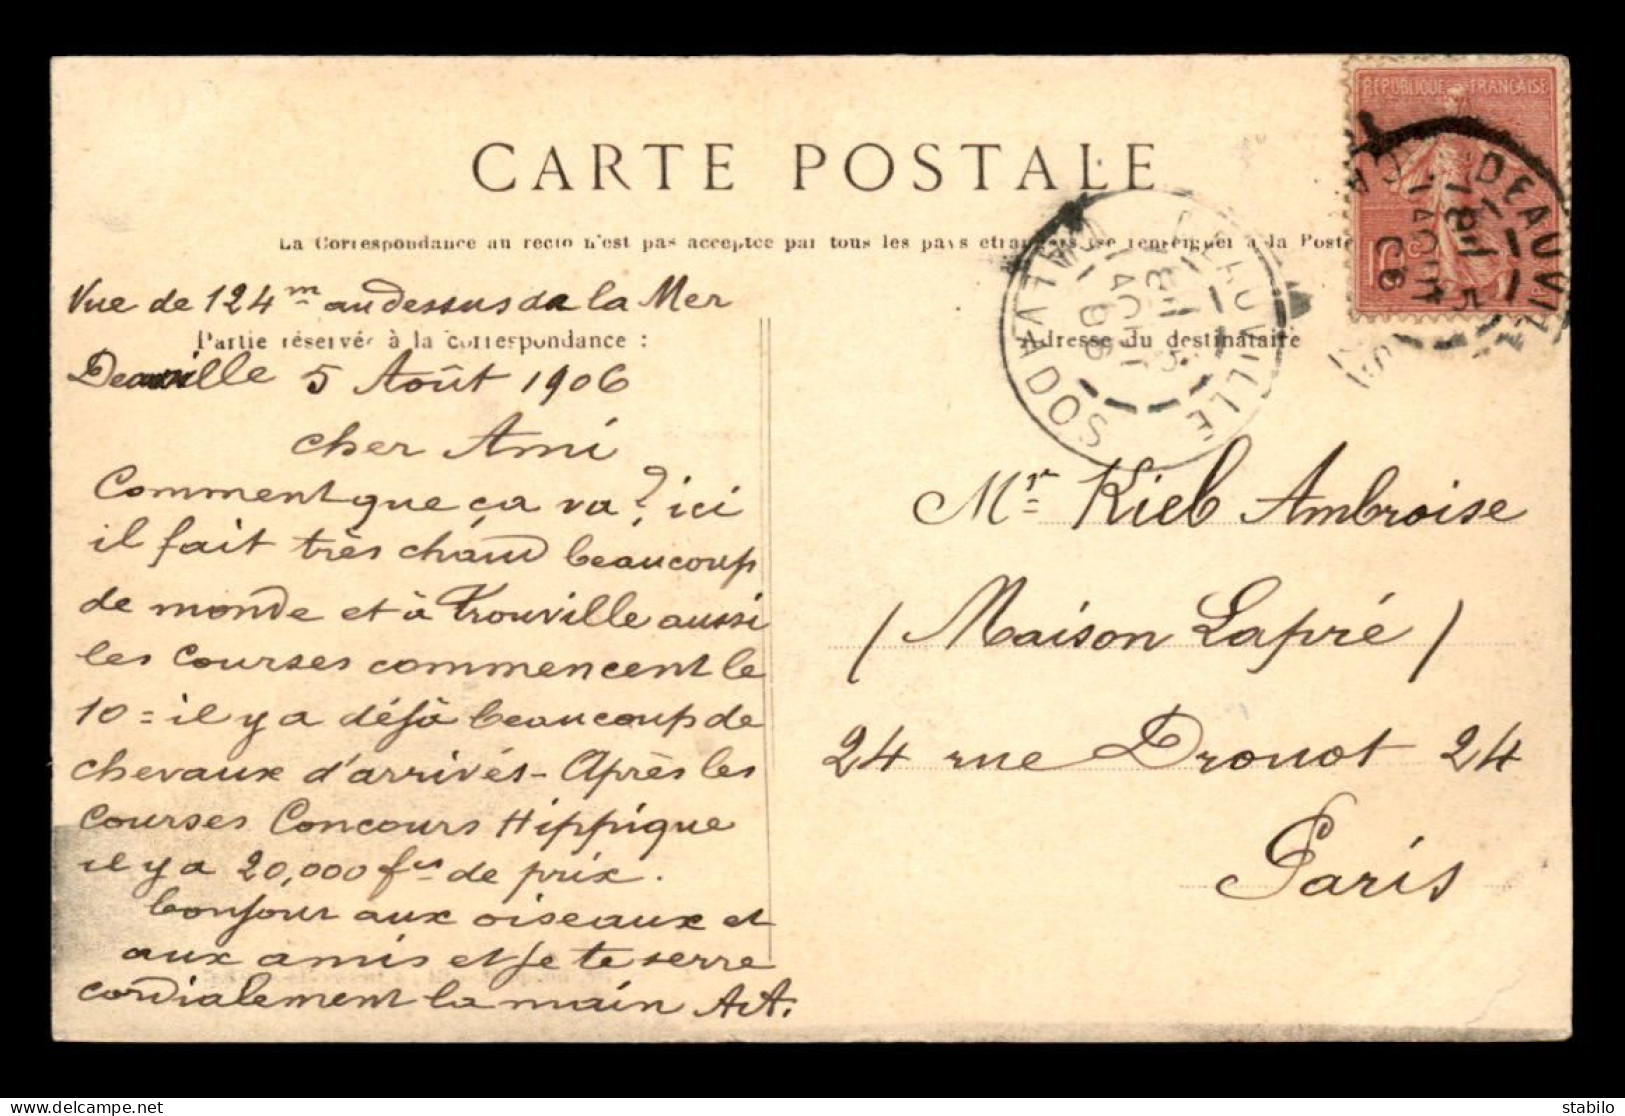 CARTE POSTALE
La Correspondance au recto n'est pas acceptée par tous les pays étrangers (se renseigner à la Poste
Vue de 124 m au dessus de la Mer
Partie réservée à la correspondance :
Deauville 5 Août 1906
cher Ami
Comment que ça va? ici
il fait très chaud beaucoup
de monde et à Trouville aussi
les courses commencent le
10 = il y a déjà beaucoup de
chevaux d'arrivés - Après les
courses Concours Hippique
il y a 20,000 frs de prix.
bonjour aux oiseaux et
aux amis et je te serre
cordialement la main
Adresse du destinataire
Mr Kieb Ambroise
(Maison Lapré)
24 rue Drouot 24
Paris
REPUBLIQUE FRANÇAISE
10c
DEAUVILLE
CALVADOS
5
AOUT
06
DEAUVILLE
CA
5
AOUT
06
stabilo
delcampe.net